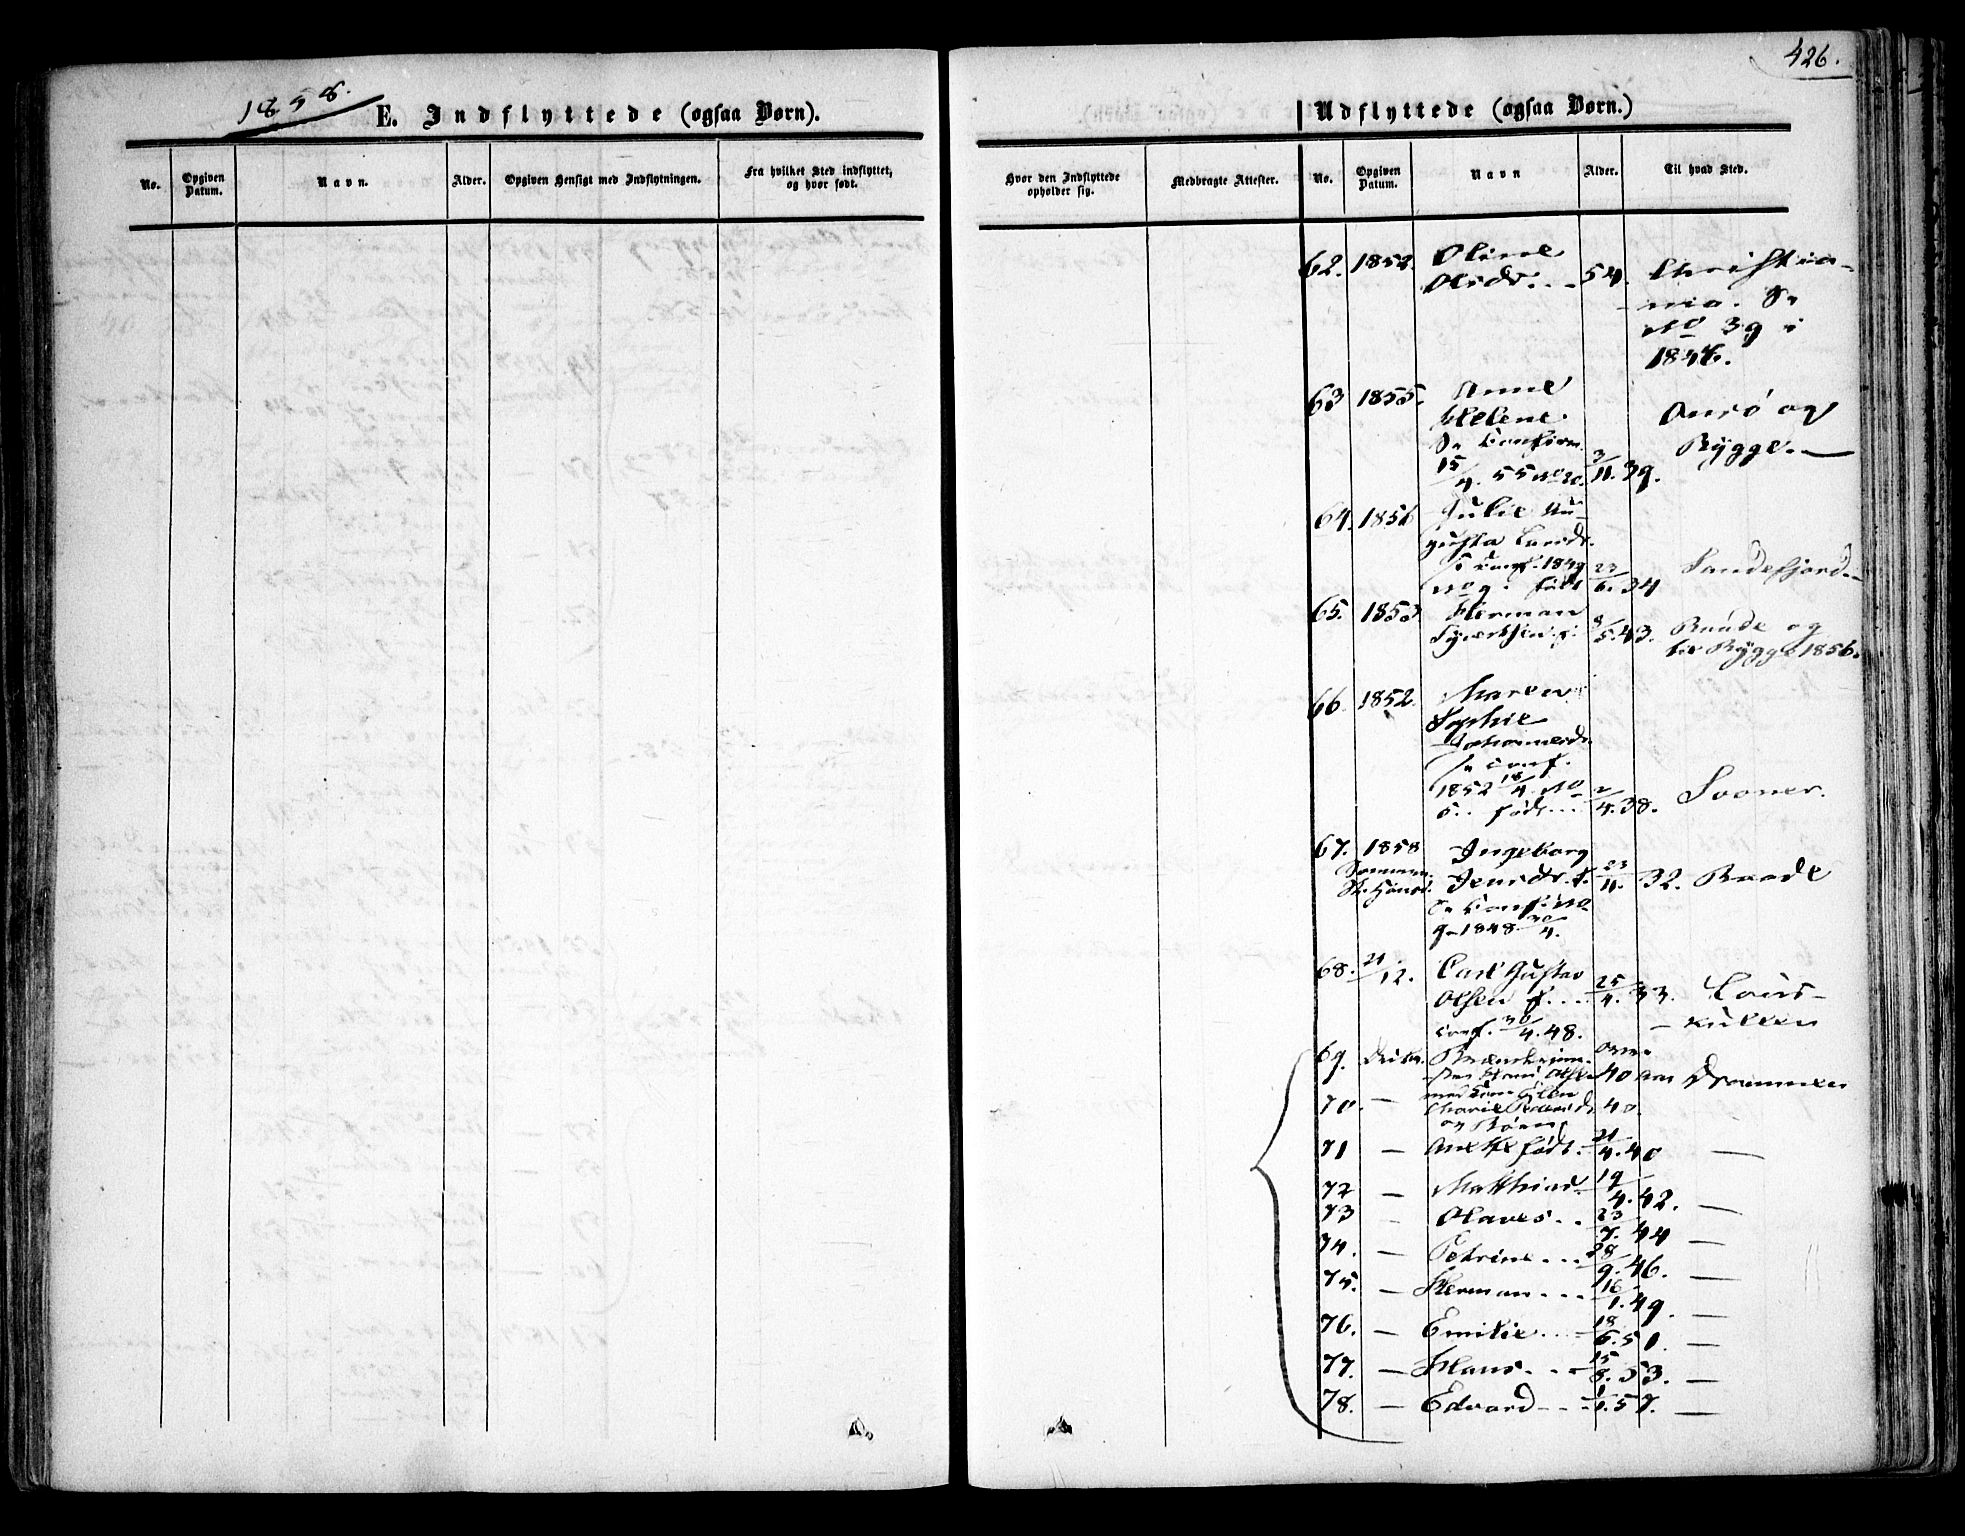 426.
1858.
E. Indflyttede (ogsaa Børn).
No.
Opgiven Datum.
Navn.
Alder.
Opgiven Hensigt med Indflytningen.
Fra hvilket Sted indflyttet, og hvor født.
Udflyttede (ogsaa Børn.)
Hvor den Indflyttede opholder sig.
Medbragte Attester.
No.
Opgiven Datum.
Navn
Alder.
Til hvad Sted.
62. 1852. Oline
Olsdr. 54. Christia-
nia. Se
No 39 i
63 1855. Anne
Helene.
Se Confirm
15/4. 55 No 20. 3/11. 39. Onsø og
Rygge. —
64. 1856 Julie Au-
gusta Larsdr.
conf. 1849
No 9. født 23/6. 34 Sandefjord
65. 1853 Herman
Syvertsen f. 5.43. Raade og
til Rygge 1856.
66. 1852. Maren
Sophie
Johannesdr.
Se conf.
1852 18/4. No
5. født 2/4. 38. Sooner.
67. 1858 Ingeborg
Jensdr. f. 23/11. 32. Raade
Se Conf. No
9 - 1848 30/4.
68. 21/12. Carl Gustav
Olsen f. 25/4. 33.
conf. 30/4. 48.
69. Olsen 40 aar Drammen
70. — Marie Pedersd. 40.
og Børn
71 — Anette født. 21/4. 40 —
72 — Matthias 19/4. 42. —
73 — Olaves. 23/7. 44 —
74. — Petrine 28/9. 46. —
75. — Herman 16/1. 49. —
76. — Emilie 18/6. 51. —
77. — Hans. 15/8. 53. —
78. — Edvard 1/1. 57. —